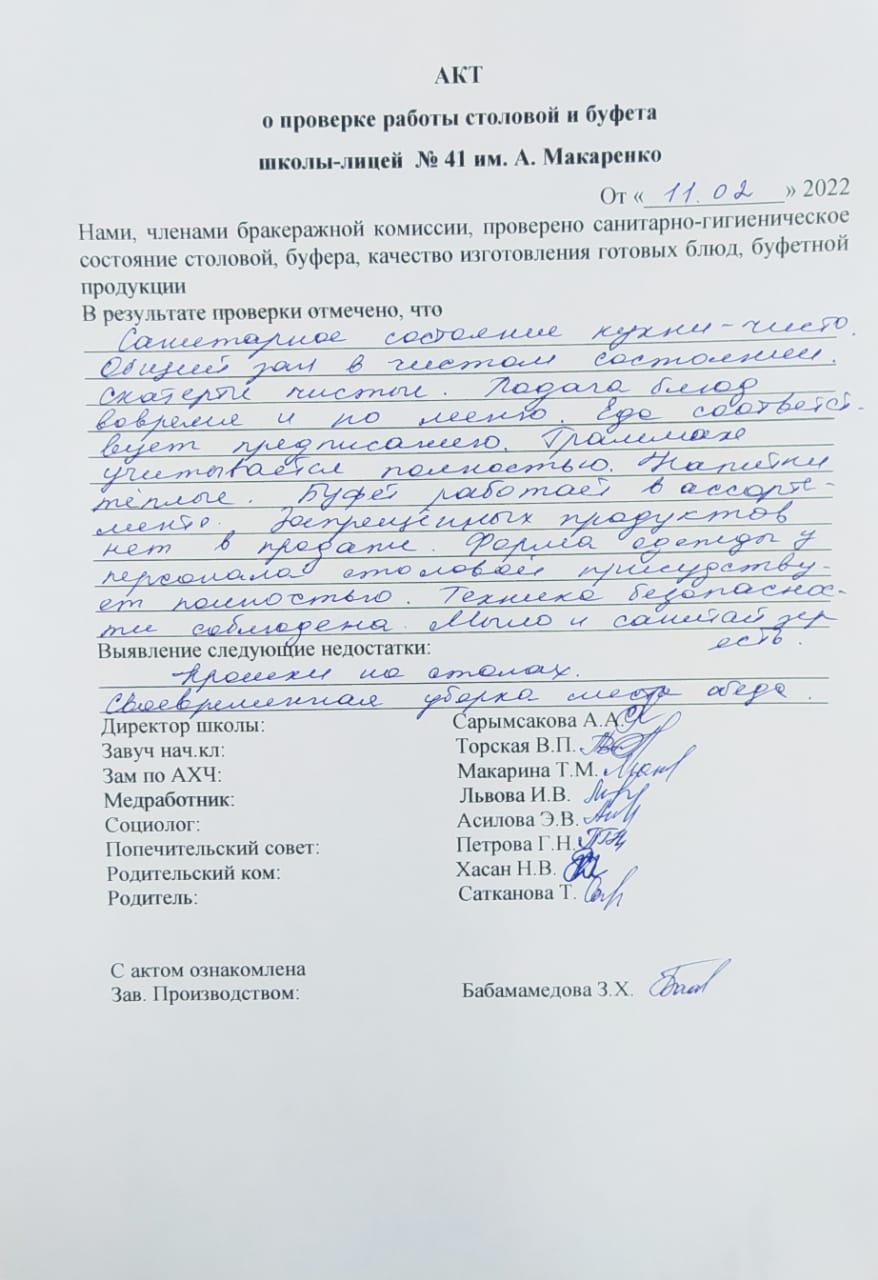 АКТ
о проверке работы столовой и буфета
школы-лицей № 41 им. А. Макаренко
От «11.02» 2022
Нами, членами бракеражной комиссии, проверено санитарно-гигиеническое
состояние столовой, буфера, качество изготовления готовых блюд, буфетной
продукции
В результате проверки отмечено, что
Санитарное состояние кухни - чисто.
Общий зал в чистом состоянии.
Скатерти чистые. Подача блюд
вовремя и по меню. Еда соответст-
вует предписанию. Граммаж
учитывается полностью. Напитки
тёплые. Буфет работает в ассорти-
менте. Запрещённых продуктов
нет в продаже. Форма одежды у
персонала столовой присудству-
ет полностью. Техника безопаснос-
ти соблюдена. Мыло и санитайзер
есть.
Выявление следующие недостатки:
Крошки на столах.
Своевременная уборка места обеда.
Директор школы: Сарымсакова А.А.
Завуч нач.кл: Торская В.П.
Зам по АХЧ: Макарина Т.М.
Медработник: Львова И.В.
Социолог: Асилова Э.В.
Попечительский совет: Петрова Г.Н.
Родительский ком: Хасан Н.В.
Родитель: Сатканова Т.
С актом ознакомлена
Зав. Производством: Бабамамедова З.Х.